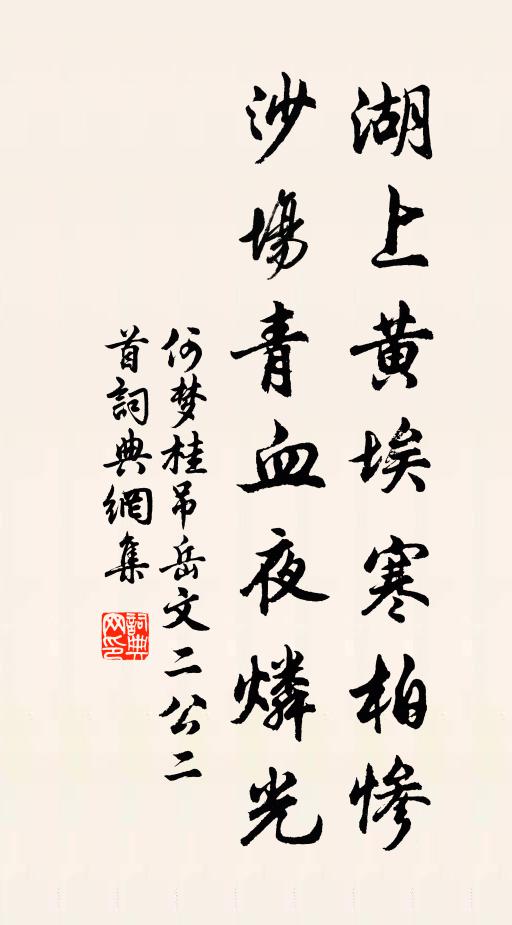 湖上黄埃寒柏惨
沙場青血夜燐光
何梦桂吊岳文二公二
首詞典網集
詞典网印